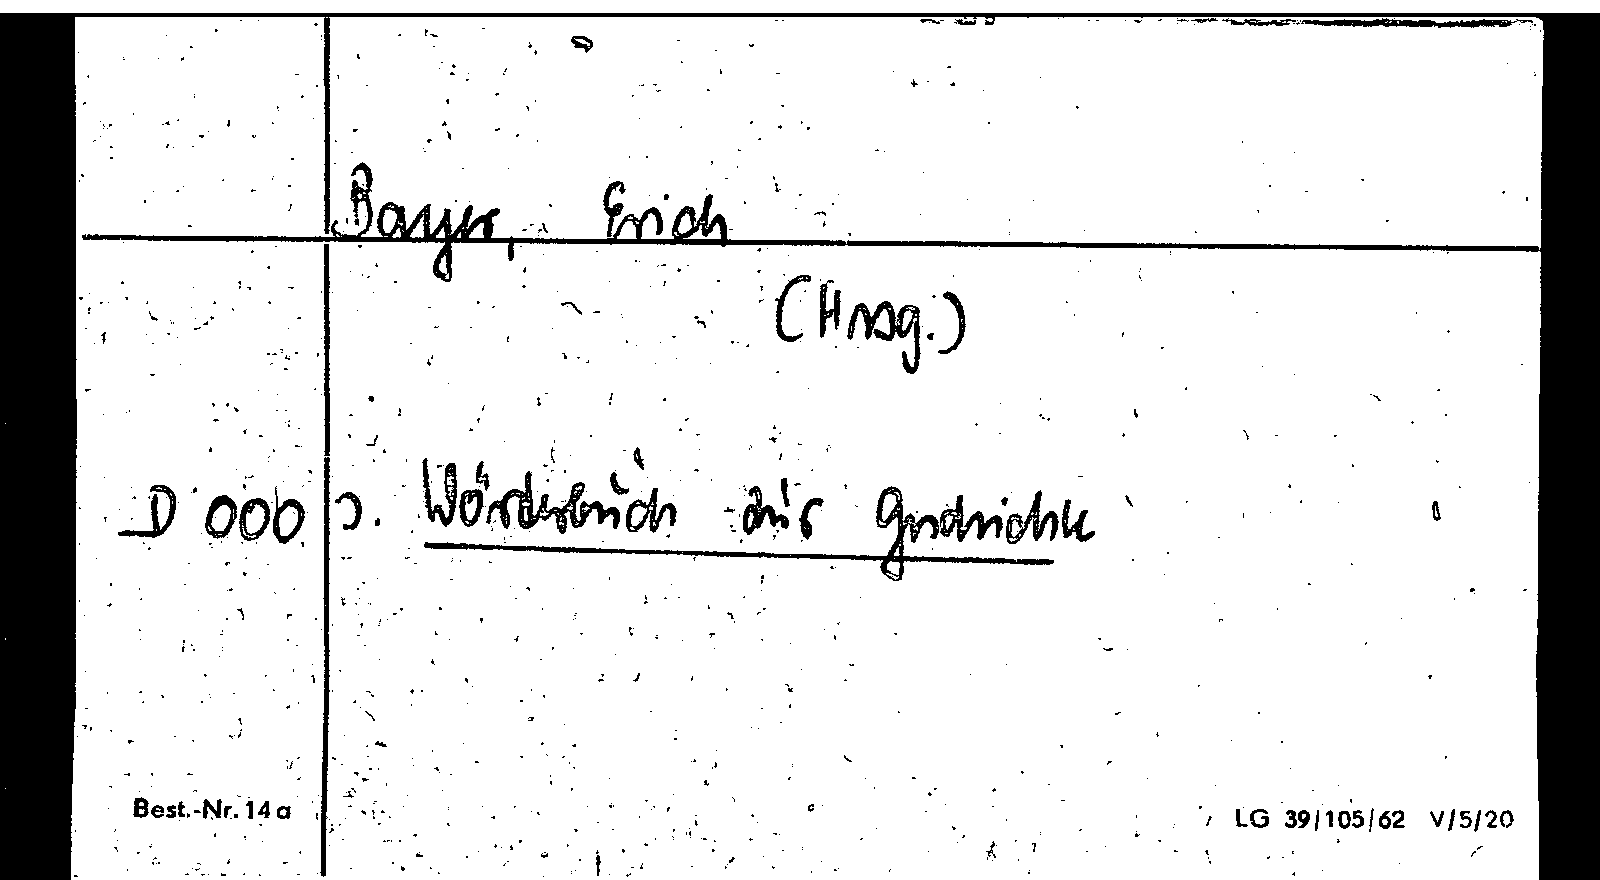 Bayer, Erich
(Hrsg.)
D 000 Wörterbuch zur Geschichte
Best.-Nr. 14 a
LG 39/105/62 V/5/20